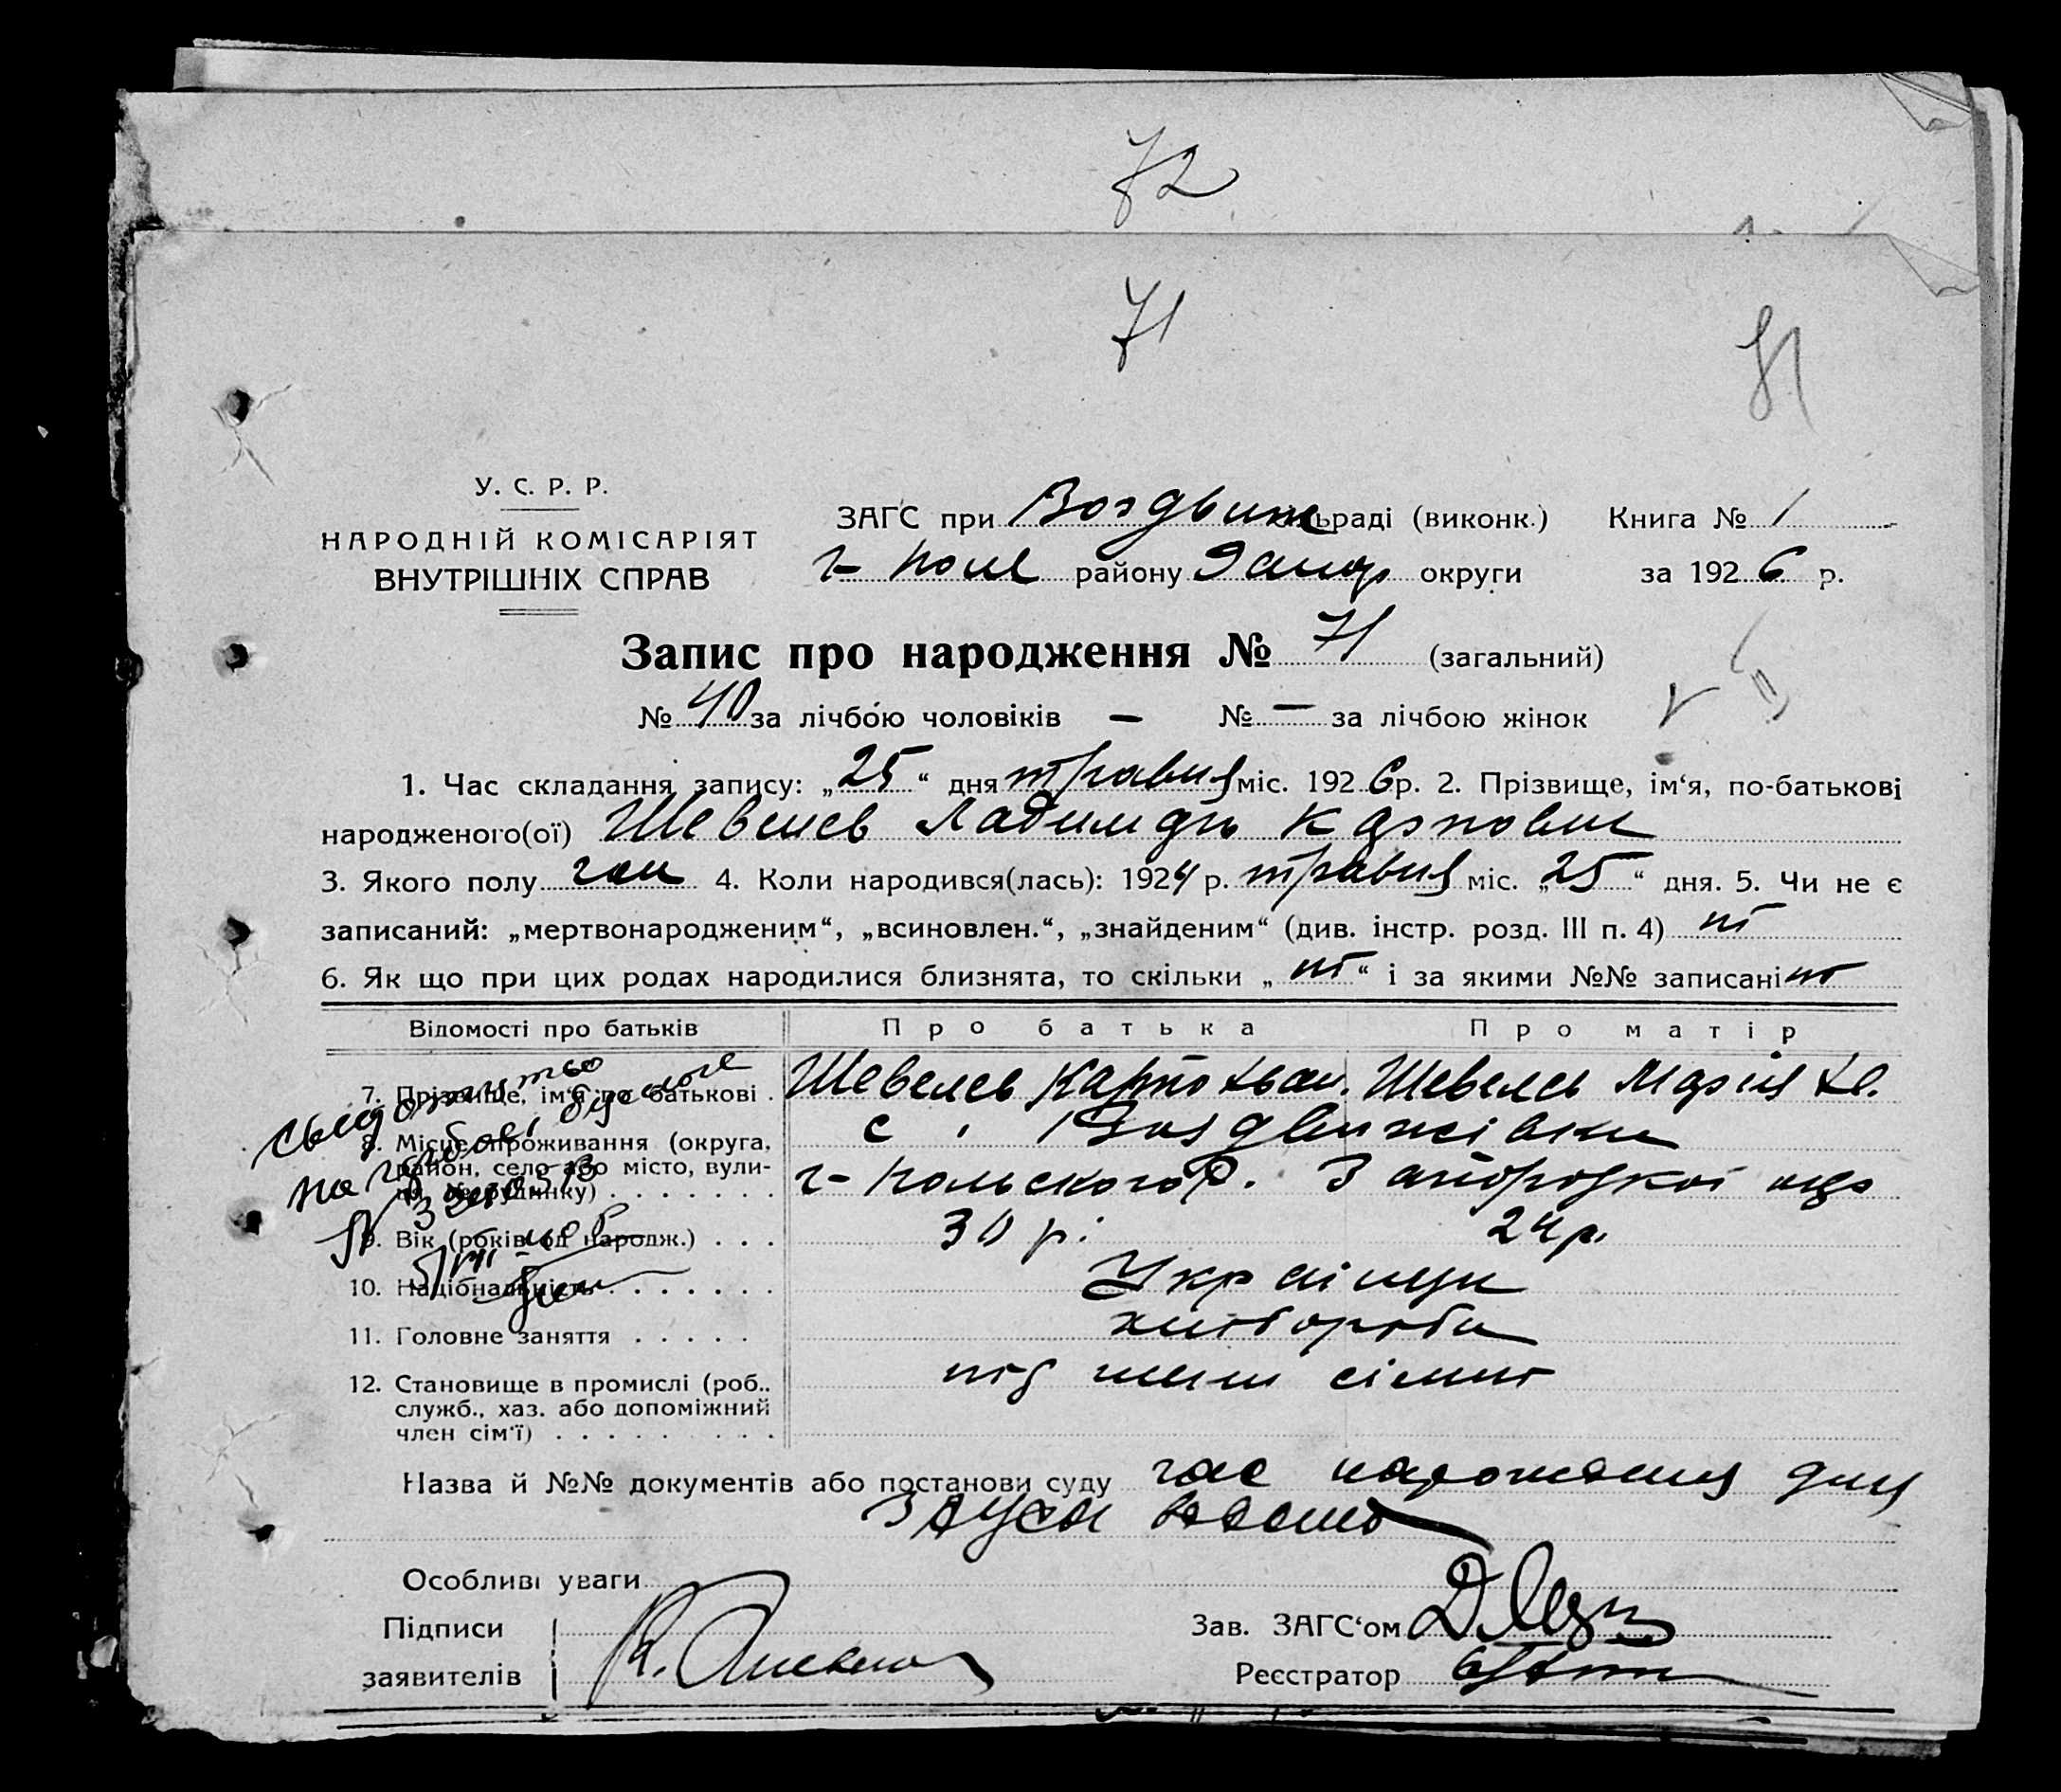 72
71
81
У. С. Р. Р.
НАРОДНІЙ КОМІСАРІЯТ
ВНУТРІШНІХ СПРАВ
ЗАГС при Воздвиж сільраді (виконк.) Книга № 1
г- поле району Запор округи за 1926 р.
Запис про народження № 71 (загальний)
№ 40 за лічбою чоловіків — № — за лічбою жінок
1. Час складання запису: „25“ дня травня міс. 1926 р. 2. Прізвище, ім‘я, по-батькові
народженого(ої) Шевелев Ладимдь Карпович
3. Якого полу чол 4. Коли народився(лась): 1924 р. травня міс. „25“ дня. 5. Чи не є
записаний: „мертвонародженим“, „всиновлен.“, „знайденим“ (див. інстр. розд. III п. 4) ні
6. Як що при цих родах народилися близнята, то скільки „ні“ і за якими №№ записані ні
Відомості про батьків Про батька Про матір
7. Прізвище, ім‘я, по батькові . Шевелев Карпо Іван. Шевелев Марія Ів.
8. Місце проживання (округа, с. Воздвижівки
район, село або місто, вули-
ця, № будинку) . . . . . . . г- польского Р. Запорозкої окр
9. Вік (років од народж.) . . . 30 р. 24 р.
10. Національність . . . . . . . Українци
11. Головне заняття . . . . . хлібороби
12. Становище в промислі (роб., член сімї
служб., хаз. або допоміжний
член сім‘ї) . . . . . . . . .
Назва й №№ документів або постанови суду час народження для
Особливі уваги
Підписи
заявителів
Зав. ЗАГС‘ом
Реєстратор